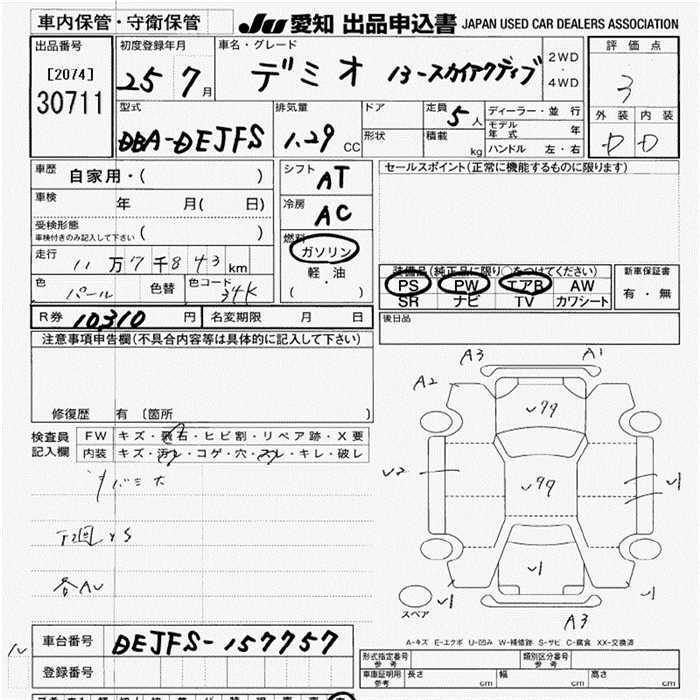 車内保管・守衛保管 JU 愛知 出品申込書 JAPAN USED CAR DEALERS ASSOCIATION
出品番号 [2074] 30711
初度登録年月 25 7月
車名・グレード デミオ 13-スカイアクティブ
2WD・4WD
評価点 3
外装 D 内装 D
型式 DBA-DEJFS
排気量 1.29 CC
ドア 形状
定員 5人
積載 kg
ディーラー・並行
モデル年式 年
ハンドル 左・右
車歴 自家用・( )
車検 年 月( 日)
受検形態 車検付きのみ記入して下さい ( )
走行 11万7千843km
色 パール 色替 色コード 34K
シフト AT
冷房 AC
燃料 ガソリン
軽・油
( )
セールスポイント(正常に機能するものに限ります)
装備品(純正品に限り○をつけてください)
PS PW エアB AW
SR ナビ TV カワシート
新車保証書 有・無
R券 10,310 円 名変期限 月 日
後日品
注意事項申告欄(不具合内容等は具体的に記入して下さい)
修復歴 有 〔箇所 〕
検査員記入欄
FW キズ・飛石・ヒビ割・リペア跡・X要
内装 キズ・汚レ・コゲ・穴・スレ・キレ・破レ
A3 A1
A2
√99
√2
√99
√1
√1
√1
√1
A3
スペア
A-キズ E-エクボ U-凹み W-補修跡 S-サビ C-腐食 XX-交換済
車台番号 DEJFS-157757
登録番号
形式指定番号 参考
類別区分番号 参考
車庫証明用 参考 長さ cm 幅 cm 高さ cm